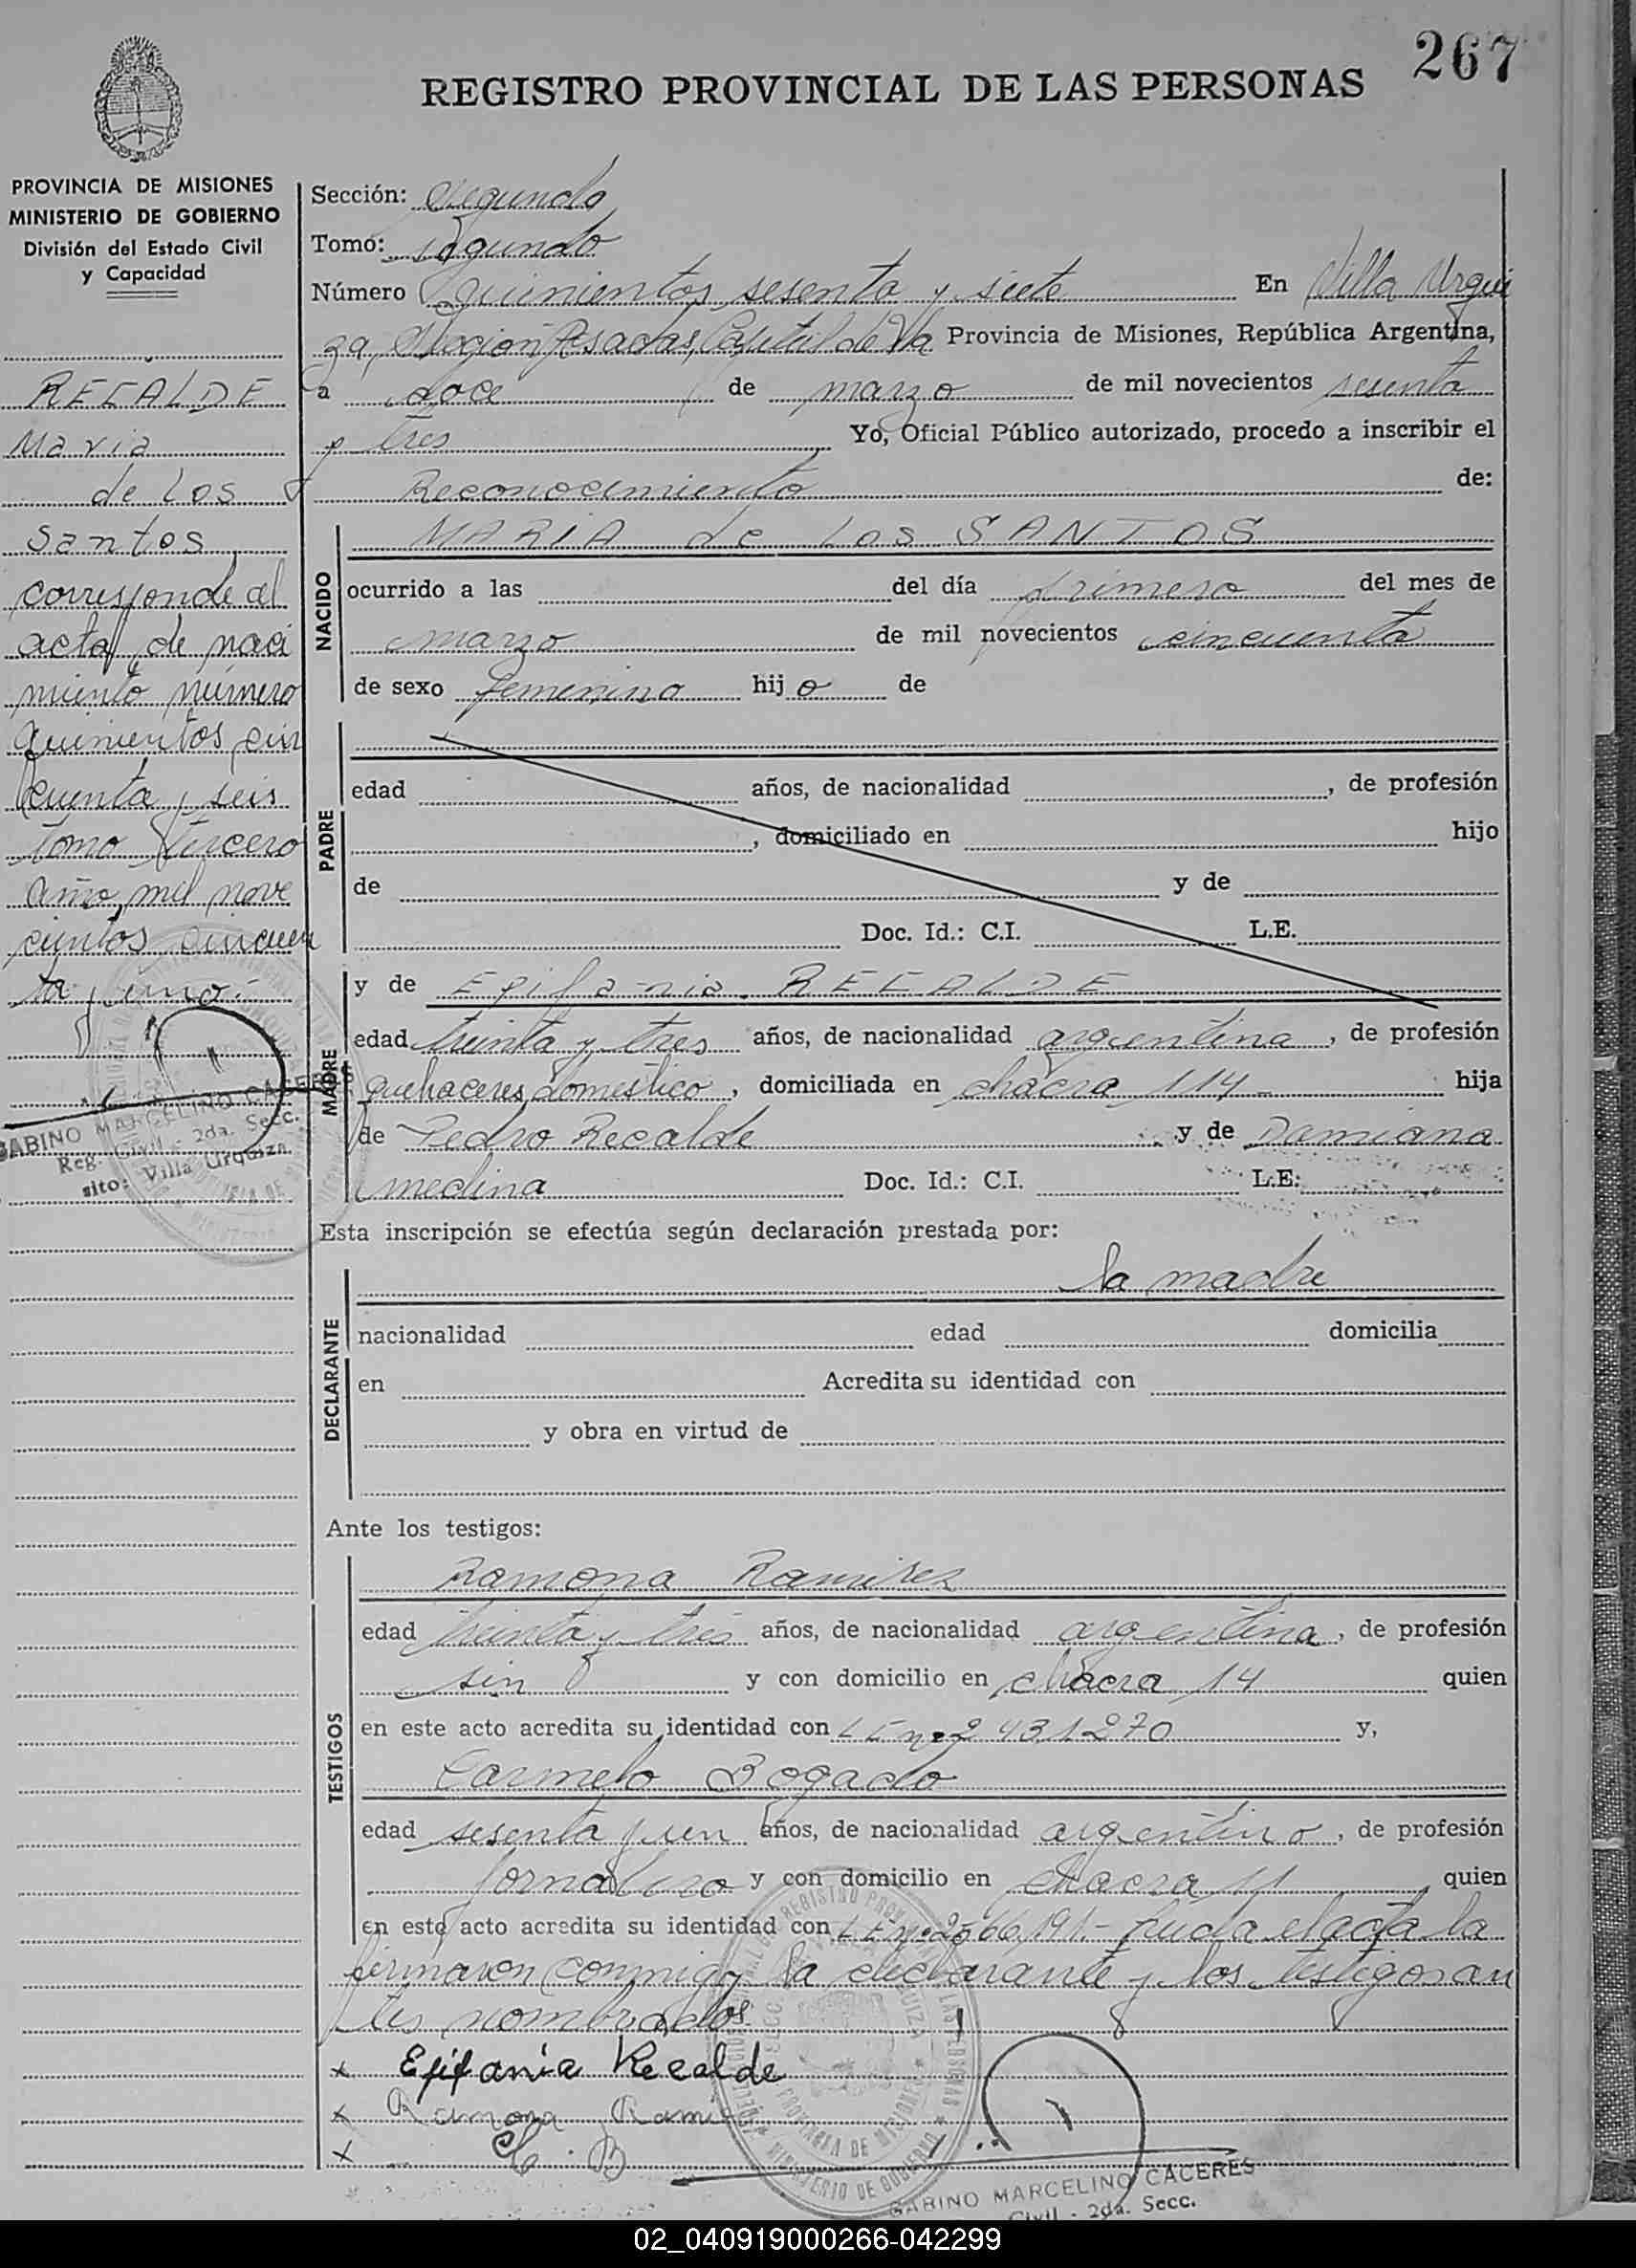 267
REGISTRO PROVINCIAL DE LAS PERSONAS
PROVINCIA DE MISIONES
MINISTERIO DE GOBIERNO
División del Estado Civil
y Capacidad
RECALDE
Maria
de Los
Santos
corresponde al
acta de naci
miento número
quinientos cin
cuenta y seis
tomo tercero
año mil nove
cientos cincuen
ta y uno.-
GABINO MARCELINO CACERES
Reg. Civil - 2da. Secc.
sito: Villa Urquiza
Sección: Segunda
Tomo: segundo
Número quinientos sesenta y siete En Villa Urqui
za, Posadas, Capital de la Provincia de Misiones, República Argentina,
a doce de marzo de mil novecientos sesenta
y tres Yo, Oficial Público autorizado, procedo a inscribir el
Reconocimiento de:
NACIDO
MARIA de Los SANTOS
ocurrido a las del día primero del mes de
marzo de mil novecientos cincuenta
de sexo femenino hijo de
PADRE
edad años, de nacionalidad , de profesión
, domiciliado en hijo
de y de
Doc. Id.: C.I. L.E.
MADRE
y de Epifania RECALDE
edad treinta y tres años, de nacionalidad argentina, de profesión
quehaceres domestico, domiciliada en chacra 114 hija
de Pedro Recalde y de Damiana
medina Doc. Id.: C.I. L.E:
Esta inscripción se efectúa según declaración prestada por:
DECLARANTE
la madre
nacionalidad edad domicilia
en Acredita su identidad con
y obra en virtud de
Ante los testigos:
TESTIGOS
Ramona Ramirez
edad treinta y tres años, de nacionalidad argentina, de profesión
sin y con domicilio en chacra 14 quien
en este acto acredita su identidad con LE nº 2431270 y,
Carmelo Bogado
edad sesenta y un años, de nacionalidad argentino, de profesión
jornalero y con domicilio en chacra 11 quien
en este acto acredita su identidad con LE nº 2566,191.- Leida el acta la
firmaron conmigo la declarante y los testigos an
tes nombrados.
x Epifania Recalde
x Ramona Rami
x C. B
GABINO MARCELINO CACERES
Civil - 2da. Secc.
02_040919000266-042299